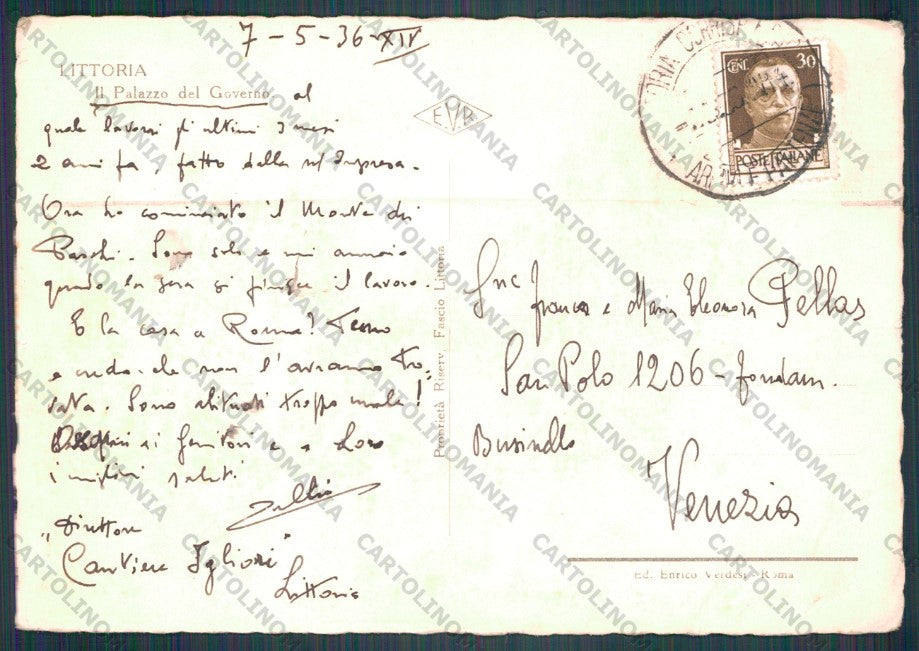 7-5-36-XIV
LITTORIA
Il Palazzo del Governo al
quale lavorai gli ultimi 3 mesi
2 anni fa, fatto dalla n/ Impresa.
Ora ho cominciato il Monte dei
Paschi. Sono solo e mi annoio
quando la sera si finisce il lavoro.
E la casa a Roma? Temo
e vedo che non l'avranno tro-
vata. Sono abituati troppo male!
Ossequi ai Genitori e a Loro
i migliori saluti.
Tullio
"Direttore
Cantiere Igliori"
Littoria
EVR
Proprietà Riserv. Fascio Littoria
CENT. 30
POSTE ITALIANE
Franca e Maria Eleonora Fellas
San Polo 1206 - fondam.
Businello
Venezia
Ed. Enrico Verdesi - Roma
CARTOLINOMANIA